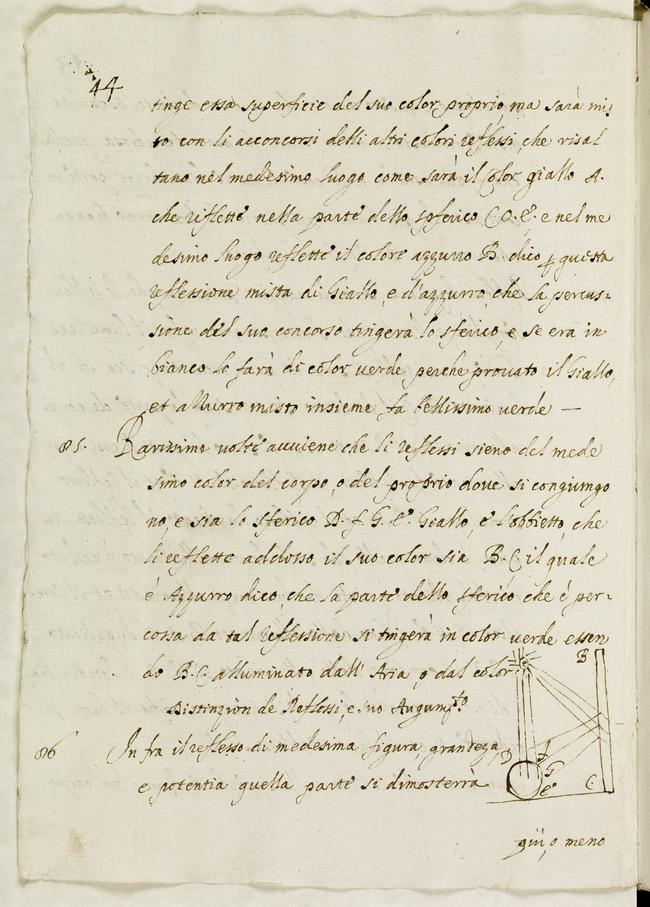 44
tinge essa superficie del suo color proprio, ma sarà mis
to con li acconcorsi delli altri colori reflessi, che risal
tano nel medesimo luogo come sarà il Color giallo A.
che reflette nella parte dello sferico C. O. E. e nel me
desimo luogo reflette il colore azzurro B. dico p questa
reflessione mista di Giallo, e d'azzurro, che la percus-
sione del suo concorso tingerà lo sferico, e se era in
bianco lo farà di color verde perche provato il Giallo,
et azzurro misto insieme fa bellissimo verde —
85. Rarissime volte avviene che li reflessi sieno del mede
simo color del corpo, o del proprio dove si congiungo
no, e sia lo sferico D. f. G. e. Giallo, e l'obbietto, che
li reflette addosso il suo color sia B. C. il quale
è Azzurro dico, che la parte dello sferico che è per-
cossa da tal reflessione si tingerà in color verde essen
do B. C. alluminato dall' Aria, o dal color
Distinzion de Reflessi, e suo Augumto
86 In fra il reflesso di medesima figura, grandeza,
e potentia quella parte si dimosterrà
B
D
f
G
e
C
più, o meno